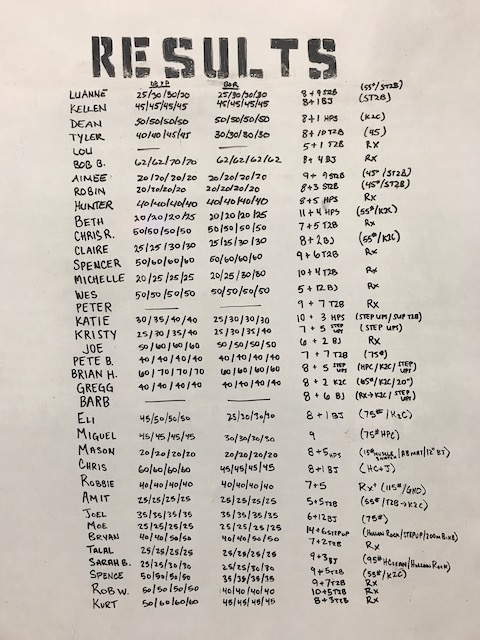 RESULTS
DB FP BOR
LUANNE 25/30/30/30 25/30/30/30 8 + 9 S2B (55#/ST2B)
KELLEN 45/45/45/45 45/45/45/45 8 + 1 BJ (ST2B)
DEAN 50/50/50/50 50/50/50/50 8 + 1 HPS (K2C)
TYLER 40/40/45/45 30/30/30/30 8 + 10 T2B (45)
LOU — 5 + 1 T2B Rx
BOB B. 62/62/70/70 62/62/62/62 8 + 4 BJ Rx
AIMEE 20/70/20/20 20/20/20/20 9 + 9 ST2B (45#/ST2B)
ROBIN 20/20/20/20 20/20/20/20 8 + 3 ST2B (45#/ST2B)
HUNTER 40/40/40/40 40/40/40/40 8 + 5 HPS Rx
BETH 20/20/20/25 20/20/20/25 11 + 4 HPS (55#/K2C)
CHRIS R. 50/50/50/50 50/50/50/50 7 + 5 T2B Rx
CLAIRE 25/25/30/30 25/25/30/30 8 + 2 BJ (55#/K2C)
SPENCER 50/60/60/60 50/60/60/60 9 + 6 T2B Rx
MICHELLE 20/25/25/25 20/25/30/30 10 + 4 T2B Rx
WES 50/50/50/50 50/50/50/50 5 + 12 BJ Rx
PETER — — 9 + 7 T2B Rx
KATIE 30/35/40/40 25/30/30/30 10 + 3 HPS (STEP UPS/SUP T2B)
KRISTY 25/30/35/40 25/30/30/30 7 + 5 STEP UPS (STEP UPS)
JOE 50/60/60/60 50/50/50/50 6 + 2 BJ Rx
PETE B. 40/40/40/40 40/40/40/40 7 + 7 T2B (75#)
BRIAN H. 60/70/70/70 60/60/60/60 8 + 5 STEP UPS (HPC/K2C/STEP UPS)
GREGG 40/40/40/40 40/40/40/40 8 + 2 K2C (65#/K2C/20")
BARB — — 8 + 6 BJ (Rx→K2C/STEP UPS)
ELI 45/50/50/50 25/30/30/30 8 + 1 BJ (75#/K2C)
MIGUEL 45/45/45/45 30/30/30/30 9 (75# HPC)
MASON 20/20/20/20 20/20/20/20 8 + 5 HPS (15# MUSCLE SNATCH/ABMAT/12" BJ)
CHRIS 60/60/60/60 45/45/45/45 8 + 1 BJ (HC+J)
ROBBIE 40/40/40/40 40/40/40/40 7 + 5 Rx+ (115#/GHD)
AMIT 25/25/25/25 25/25/25/25 5 + 5 T2B (55#/T2B→K2C)
JOEL 35/35/35/35 35/35/35/35 6 + 12 BJ (75#)
MOE 25/25/25/25 25/25/25/25 14 + 6 STEPUP (HOLLOW ROCK/STEPUP/200m BIKE)
BRYAN 40/40/50/50 40/40/50/50 7 + 2 T2B Rx
TALAL 25/25/25/25 25/25/25/25 9 + 3 BJ (95# HCLEAN/HOLLOW ROCK)
SARAH B. 25/25/30/30 25/25/30/30 9 + 5 T2B (55#/K2C)
SPENCE 50/50/50/50 35/35/35/35 9 + 7 T2B Rx
ROB W. 50/50/50/50 40/40/40/40 10 + 5 T2B Rx
KURT 50/60/60/60 45/45/45/45 8 + 3 T2B Rx